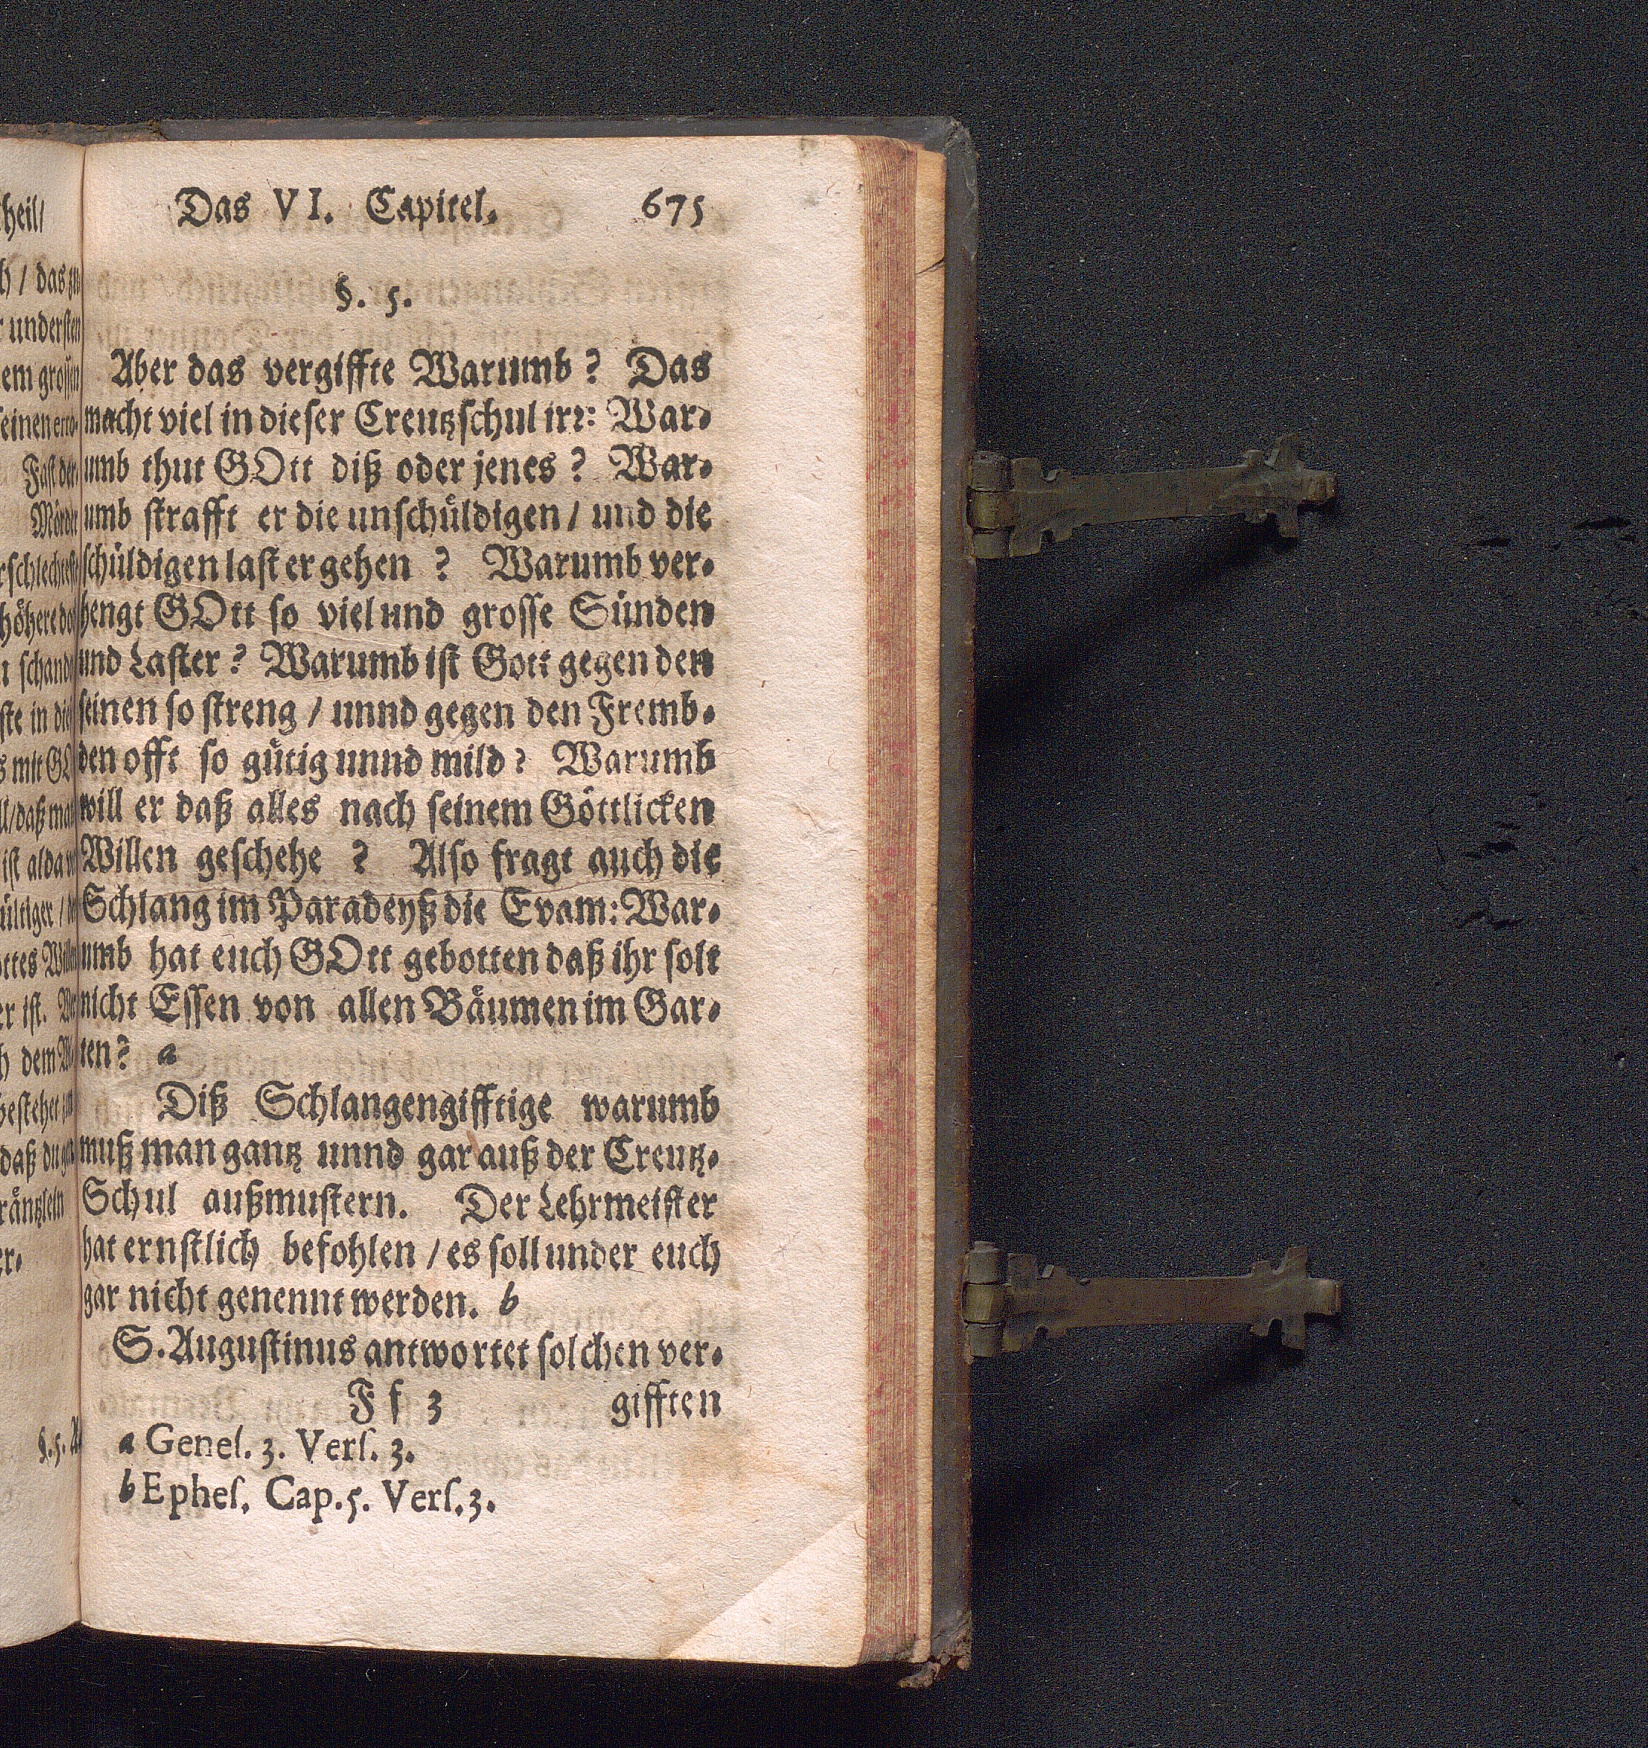 Das VI. Capitel. 675
§. 5.
Aber das vergiffte Warumb? Das
macht viel in dieser Creutzschul irr: War-
umb thut GOtt diß oder jenes? War-
umb strafft er die unschüldigen / und die
schüldigen last er gehen? Warumb ver-
hengt GOtt so viel und grosse Sünden
und Laster? Warumb ist Gott gegen den
seinen so streng / unnd gegen den Fremb-
den offt so gütig unnd mild? Warumb
will er daß alles nach seinem Göttlicken
Willen geschehe? Also fragt auch die
Schlang im Paradeyß die Evam: War-
umb hat euch GOtt gebotten daß ihr solt
nicht Essen von allen Bäumen im Gar-
ten? a
Diß Schlangengifftige warumb
muß man gantz unnd gar auß der Creutz-
Schul außmustern. Der Lehrmeister
hat ernstlich befohlen / es soll under euch
gar nicht genennt werden. b
S. Augustinus antwortet solchen ver-
Ff 3 gifften
a Genes. 3. Vers. 3.
b Ephes. Cap. 5. Vers. 3.